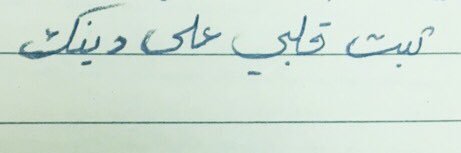 ثبت قلبي على دينك